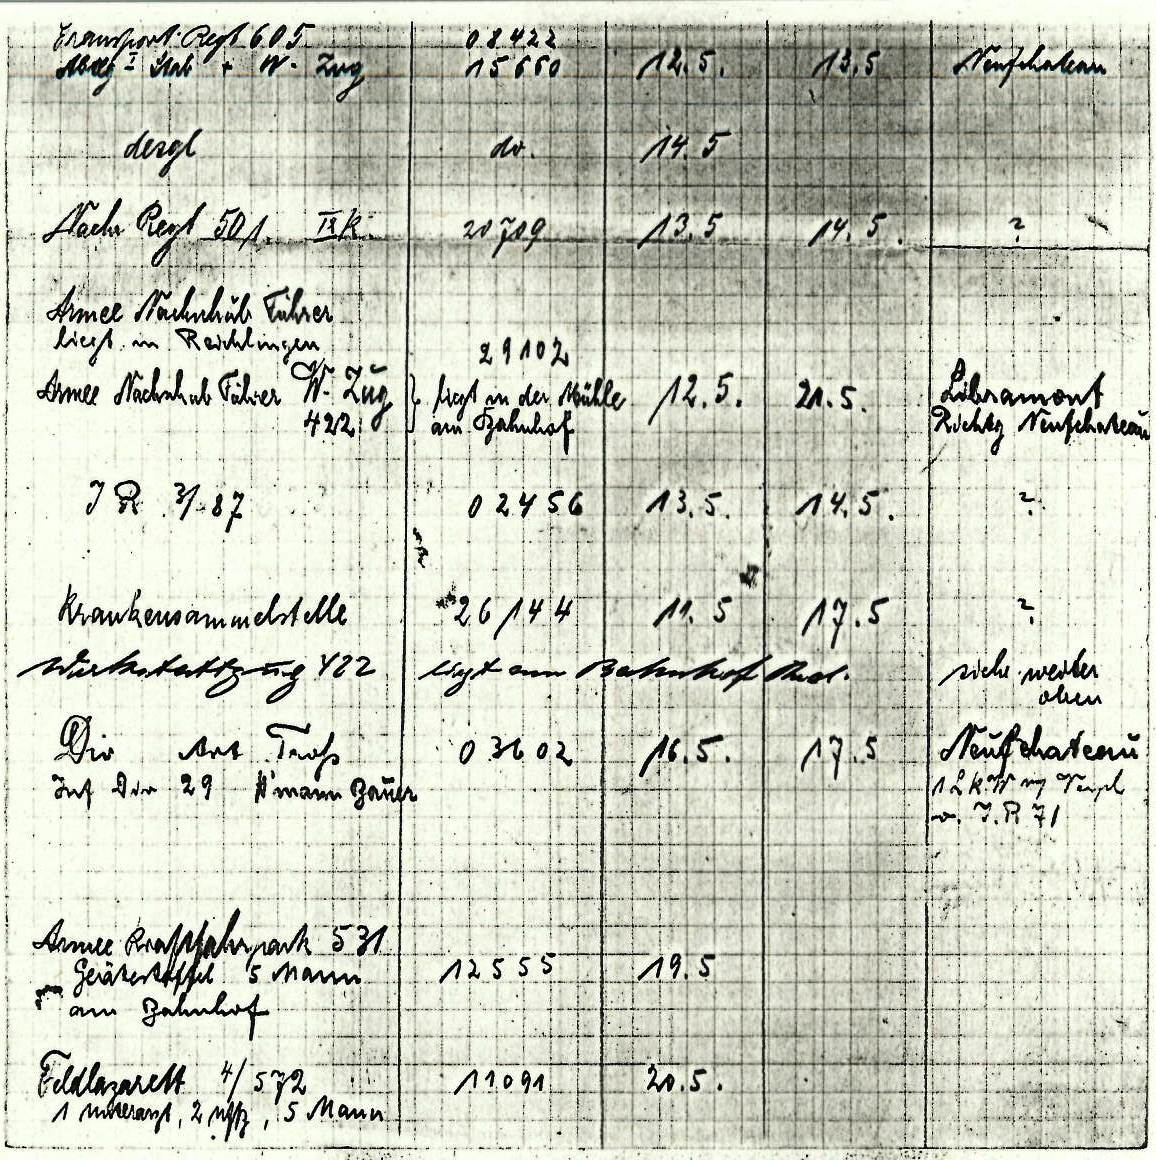 Transport Regt 605 08422
Abtlg I Stab + W. Zug 15660 12.5. 13.5 Neufchateau
desgl do. 14.5
Nachr Regt 501. IIK. 20709 13.5 14.5. ?
Armee Nachschub Führer
liegt in Reichlingen 29102
Armee Nachschub Führer W. Zug liegt in der Mühle 12.5. 21.5. Libramont
422 am Bahnhof Richtg Neufchateau
I R 3/87 02456 13.5. 14.5. ?
Krankensammelstelle 26144 11.5 17.5 ?
Werkstattzug 422 liegt am Bahnhof siehe weiter
oben
Div Art Troß 03602 16.5. 17.5 Neufchateau
Inf Div 29 H'mann Bauer 1 LKW
v. I.R 71
Armee Kraftfahrpark 531
Gerätestaffel 5 Mann 12555 19.5
am Bahnhof
Feldlazarett 4/572 11091 20.5.
1 Unterarzt, 2 Uffz, 5 Mann